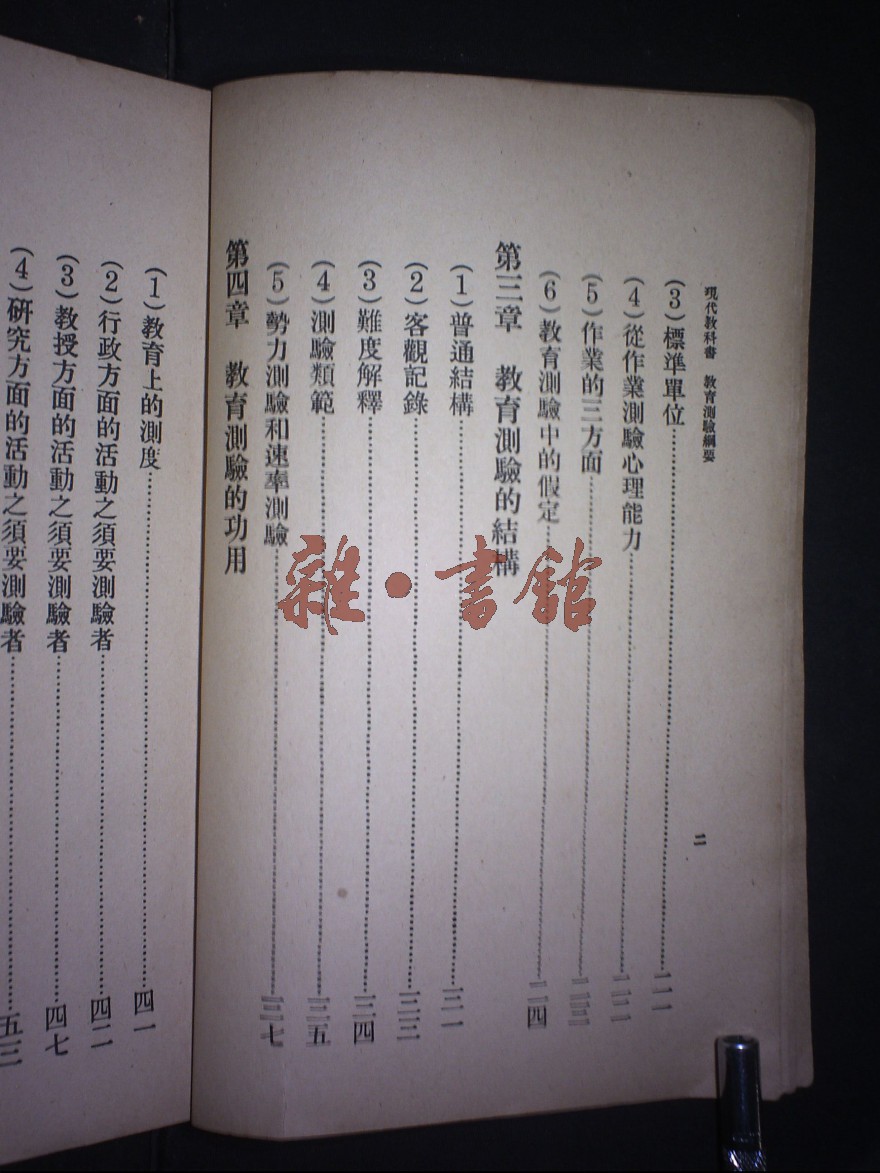 現代教科書　教育測驗綱要
二
(3)標準單位……二一
(4)從作業測驗心理能力……二二
(5)作業的三方面……二三
(6)教育測驗中的假定……二四
第三章　教育測驗的結構
(1)普通結構……三一
(2)客觀記錄……三三
(3)難度解釋……三四
(4)測驗類範……三五
(5)勢力測驗和速率測驗……三七
第四章　教育測驗的功用
(1)教育上的測度……四一
(2)行政方面的活動之須要測驗者……四二
(3)教授方面的活動之須要測驗者……四七
(4)研究方面的活動之須要測驗者……五三
雜·書館